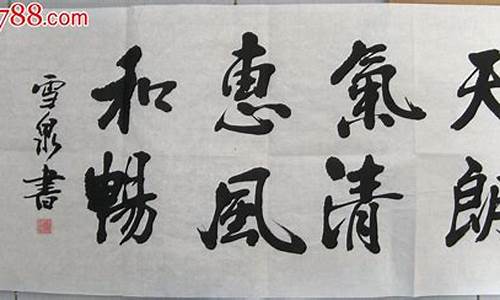 天朗
氣清
惠風
和暢
雪泉書
788.com